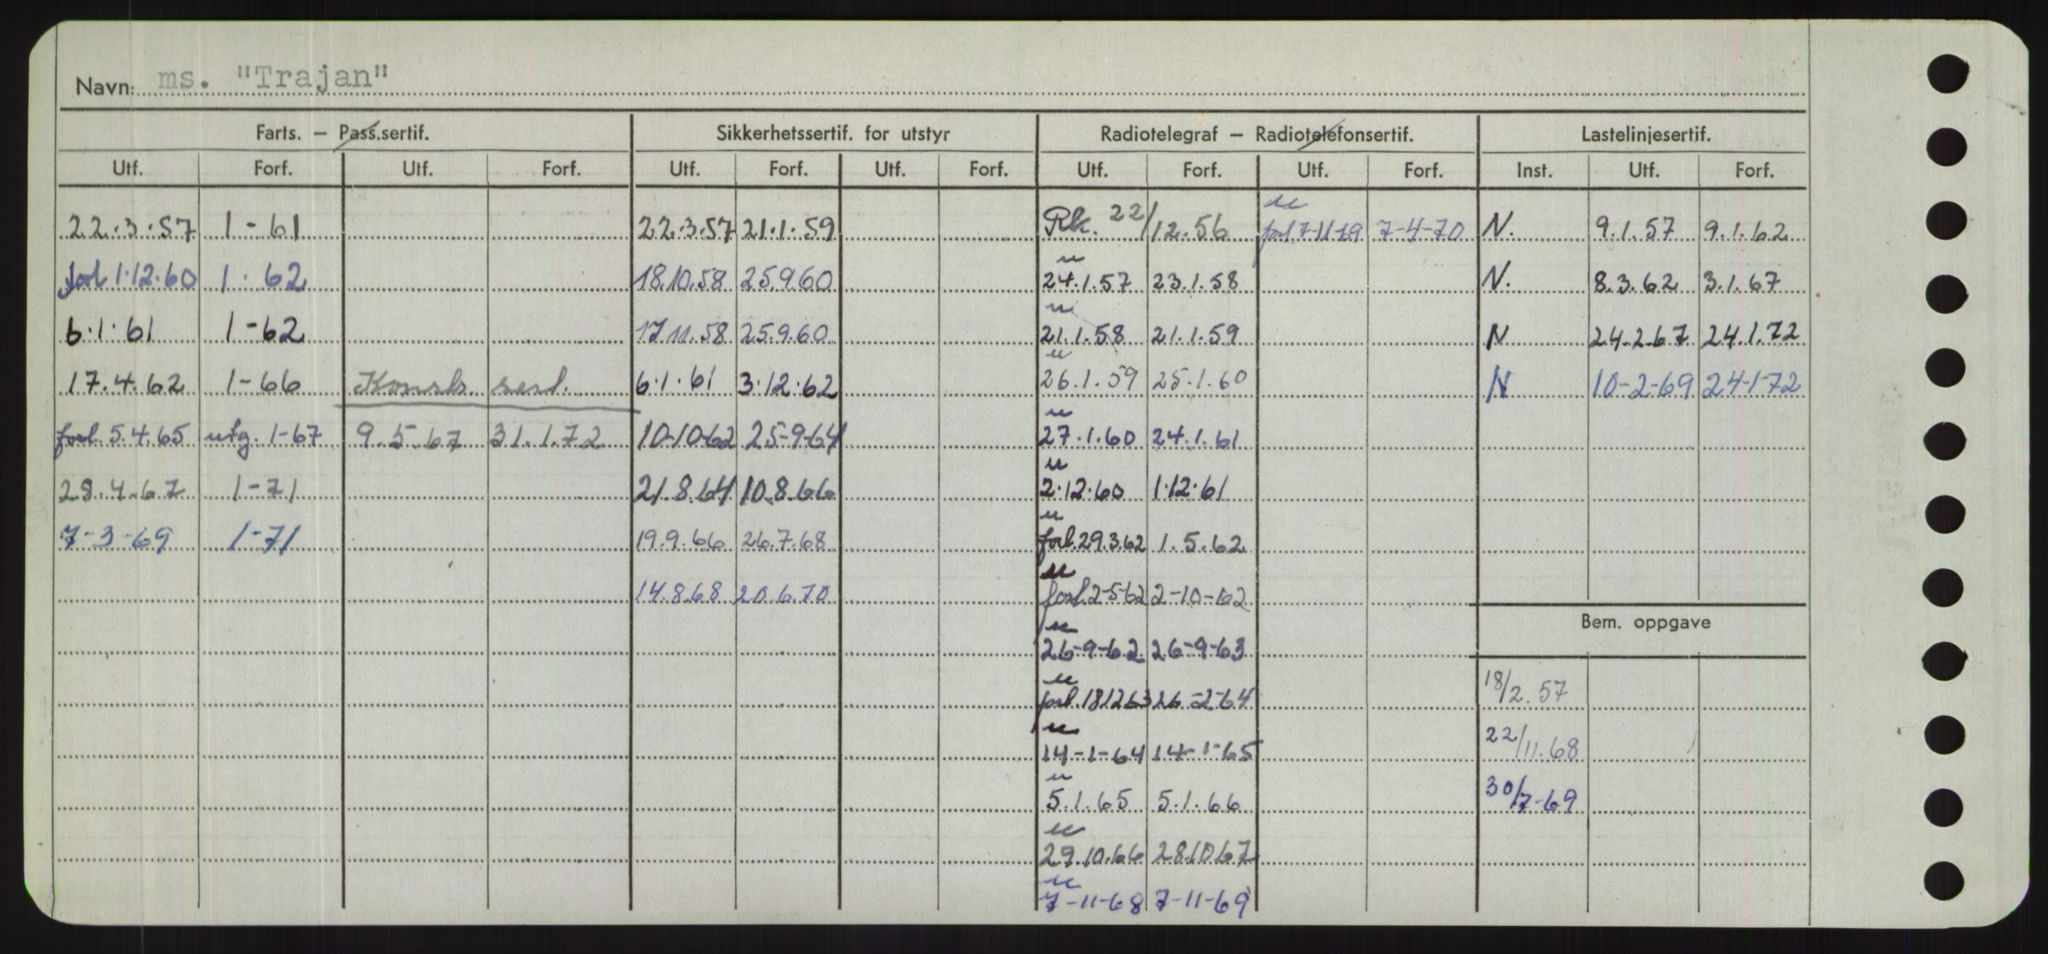 Navn: ms. "Trajan"
Farts. – Pass.sertif. Sikkerhetssertif. for utstyr Radiotelegraf – Radiotelefonsertif. Lastelinjesertif.
Utf. Forf. Utf. Forf. Utf. Forf. Utf. Forf. Utf. Forf. Utf. Forf. Inst. Utf. Forf.
22.3.57 1-61 22.3.57 21.1.59 Rk. 22/12.56 u forl. 7-11-19 7-4-70 N. 9.1.57 9.1.62
forl 1.12.60 1.62 18.10.58 25.9.60 u 24.1.57 23.1.58 N. 8.3.62 3.1.67
6.1.61 1-62 17.11.58 25.9.60 u 21.1.58 21.1.59 N 24.2.67 24.1.72
17.4.62 1-66 Konstr. sert. 6.1.61 3.12.62 u 26.1.59 25.1.60 N 10-2-69 24-1-72
forl 5.4.65 utg. 1-67 9.5.67 31.1.72 10-10-62 25-9-64 u 27.1.60 24.1.61
28.4.67 1-71 21.8.64 10.8.66 u 2.12.60 1.12.61
7-3-69 1-71 19.9.66 26.7.68 u forl. 29.3.62 1.5.62
14.8.68 20.6.70 u forl. 2-5-62 2-10-62
Bem. oppgave
u 26-9-62 26-9-63
18/2.57
u forl. 181263 26-2-64
22/11.68
u 14-1-64 14-1-65
30/7-69
u 5.1.65 5.1.66
u 29.10.66 28.10.67
u 7-11-68 7-11-69